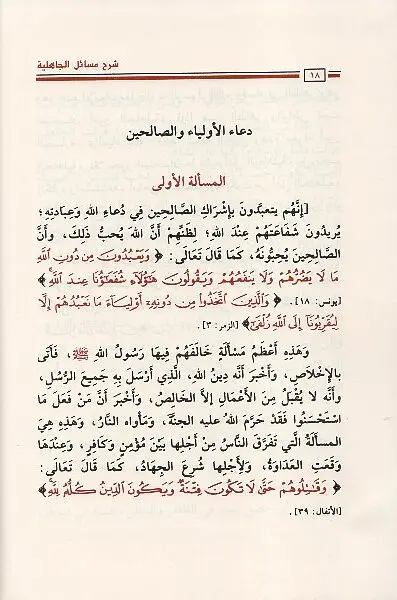 شرح مسائل الجاهلية
١٨
دعاء الأولياء والصالحين
المسألة الأولى
[إِنَّهُم يتعبدُونَ بِإِشْرَاكِ الصَّالِحِينَ فِي دُعَاءِ اللهِ وَعِبَادَتِهِ؛
يُرِيدُونَ شَفَاعَتَهُمْ عِنْدَ اللهِ؛ لِظَنِّهِمْ أَنَّ اللهَ يُحبُّ ذَلِكَ، وأَنَّ
الصَّالِحِينَ يُحِبُّونَهُ، كَمَا قَالَ تَعَالَى: ﴿ وَيَعْبُدُونَ مِن دُونِ اللَّهِ
مَا لَا يَضُرُّهُمْ وَلَا يَنفَعُهُمْ وَيَقُولُونَ هَٰؤُلَاءِ شُفَعَاؤُنَا عِندَ اللَّهِ ﴾
[يونس: ١٨]. ﴿ وَالَّذِينَ اتَّخَذُوا مِن دُونِهِ أَوْلِيَاءَ مَا نَعْبُدُهُمْ إِلَّا
لِيُقَرِّبُونَا إِلَى اللَّهِ زُلْفَىٰ ﴾ [الزمر: ٣].
وَهَذِهِ أَعْظَمُ مَسْأَلَةٍ خَالَفَهُمْ فِيهَا رَسُولُ اللهِ ﷺ، فَأَتَى
بِالإِخْلَاصِ، وَأَخْبَرَ أَنَّهُ دِينُ اللهِ، الَّذِي أَرْسَلَ بِهِ جَمِيعَ الرُّسُلِ،
وَأَنَّهُ لا يُقْبَلُ مِنَ الأَعْمَالِ إِلَّا الخَالِصُ، وَأَخْبَرَ أَنَّ مَنْ فَعَلَ مَا
اسْتَحْسَنُوا فَقَدْ حَرَّمَ اللهُ عليه الجنةَ، وَمَأْوَاه النَّارُ، وَهَذِهِ هِيَ
المَسأَلَةُ الَّتي تَفَرَّقَ النَّاسُ مِنْ أَجْلِهَا بَيْنَ مُؤْمِنٍ وَكَافِرٍ، وَعِنْدَهَا
وَقَعَتِ العَدَاوَةُ، وَلِأَجْلِهَا شُرِعَ الجِهَادُ، كَمَا قَالَ تَعَالَى:
﴿ وَقَاتِلُوهُمْ حَتَّىٰ لَا تَكُونَ فِتْنَةٌ وَيَكُونَ الدِّينُ كُلُّهُ لِلَّهِ ﴾
[الأنفال: ٣٩].